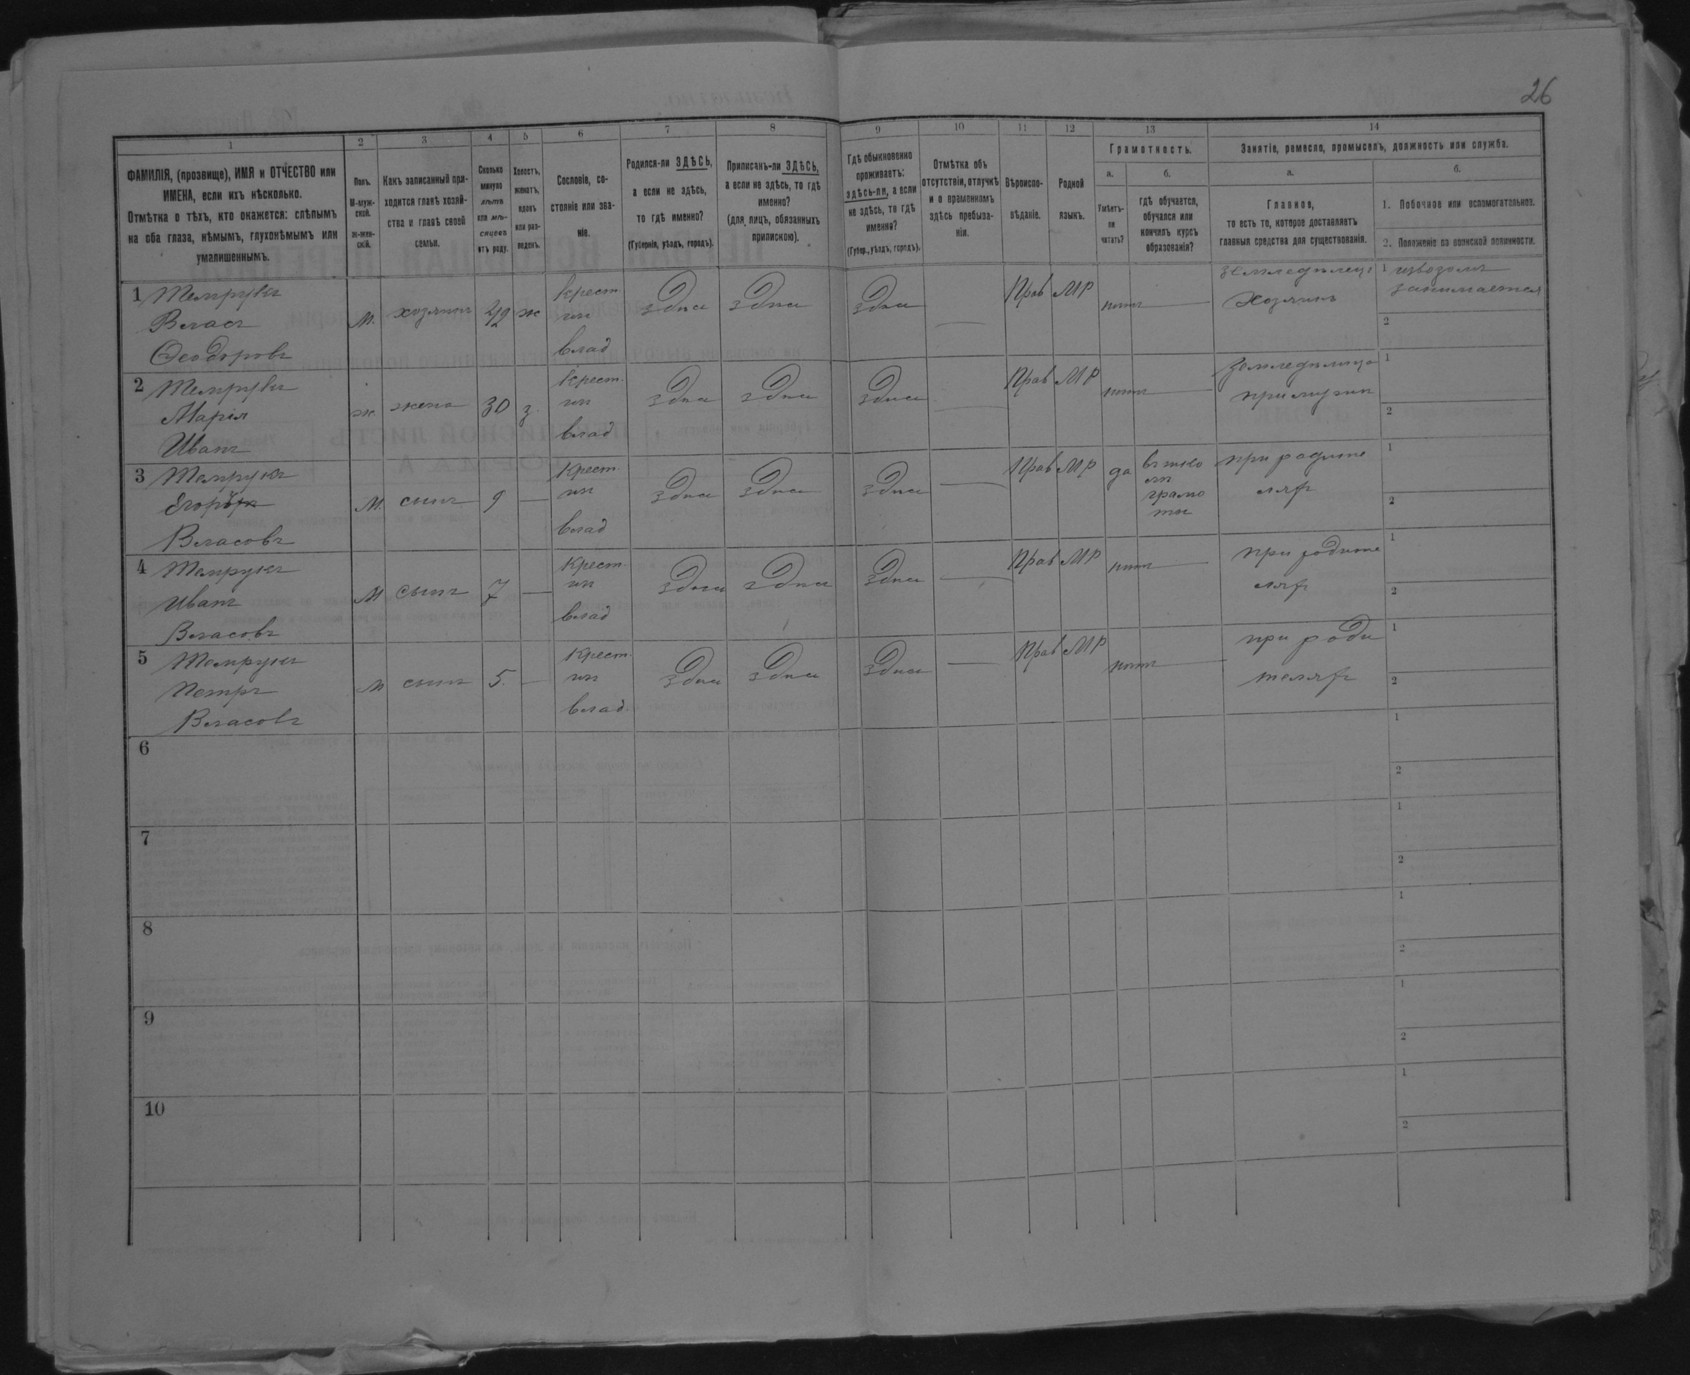 26
1
2
3
4
5
6
7
8
9
10
11
12
13
14
ФАМИЛІЯ, (прозвище), ИМЯ и ОТЧЕСТВО или
ИМЕНА, если ихъ нѣсколько.
Отмѣтка о тѣхъ, кто окажется: слѣпымъ
на оба глаза, нѣмымъ, глухонѣмымъ или
умалишеннымъ.
Полъ.
М-муж-
ской.
ж-жен-
скій.
Какъ записанный при-
ходится главѣ хозяй-
ства и главѣ своей
семьи.
Сколько
минуло
лѣтъ
или мѣ-
сяцевъ
отъ роду.
Холостъ,
женатъ,
вдовъ
или раз-
веденъ.
Сословіе, со-
стояніе или зва-
ніе.
Родился-ли ЗДѢСЬ,
а если не здѣсь,
то гдѣ именно?
(Губернія, уѣздъ, городъ).
Приписанъ-ли ЗДѢСЬ,
а если не здѣсь, то гдѣ
именно?
(для лицъ, обязанныхъ
припискою).
Гдѣ обыкновенно
проживаетъ:
здѣсь-ли, а если
не здѣсь, то гдѣ
именно?
(Губер., уѣздъ, городъ).
Отмѣтка объ
отсутствіи, отлучкѣ
и о временномъ
здѣсь пребыва-
ніи.
Вѣроиспо-
вѣданіе.
Родной
языкъ.
Грамотность.
а.
Умѣетъ-
ли
читать?
б.
Гдѣ обучается,
обучался или
кончилъ курсъ
образованія?
Занятіе, ремесло, промыселъ, должность или служба.
а.
Главное,
то есть то, которое доставляетъ
главныя средства для существованія.
б.
1. Побочное или вспомогательное.
2. Положеніе по воинской повинности.
1 Темрукъ
Власъ
Ѳеодоровъ
м.
хозяинъ
42
ж
крест.
изъ
влад
здѣсь
здѣсь
здѣсь
Прав
МР
нѣтъ
земледѣлецъ
хозяинъ
1 извозомъ
занимается
2
2 Темрукъ
Марія
Иван
ж.
жена
30
з.
крест.
изъ
влад
здѣсь
здѣсь
здѣсь
Прав
МР
нѣтъ
земледѣлица
при мужѣ
1
2
3 Темрукъ
Егоръ
Власовъ
м.
сынъ
9
Крест
изъ
влад
здѣсь
здѣсь
здѣсь
Прав
МР
да
въ шко
лѣ
грамо
ты
при родите
ляхъ
1
2
4 Темрукъ
Иванъ
Власовъ
м
сынъ
7
Крест.
изъ
влад
здѣсь
здѣсь
здѣсь
Прав
МР
нѣтъ
при родите
ляхъ
1
2
5 Темрукъ
Петръ
Власовъ
м
сынъ
5.
Крест.
изъ
влад.
здѣсь
здѣсь
здѣсь
Прав
МР
нѣтъ
при роди
теляхъ
1
2
6
1
2
7
1
2
8
1
2
9
1
2
10
1
2